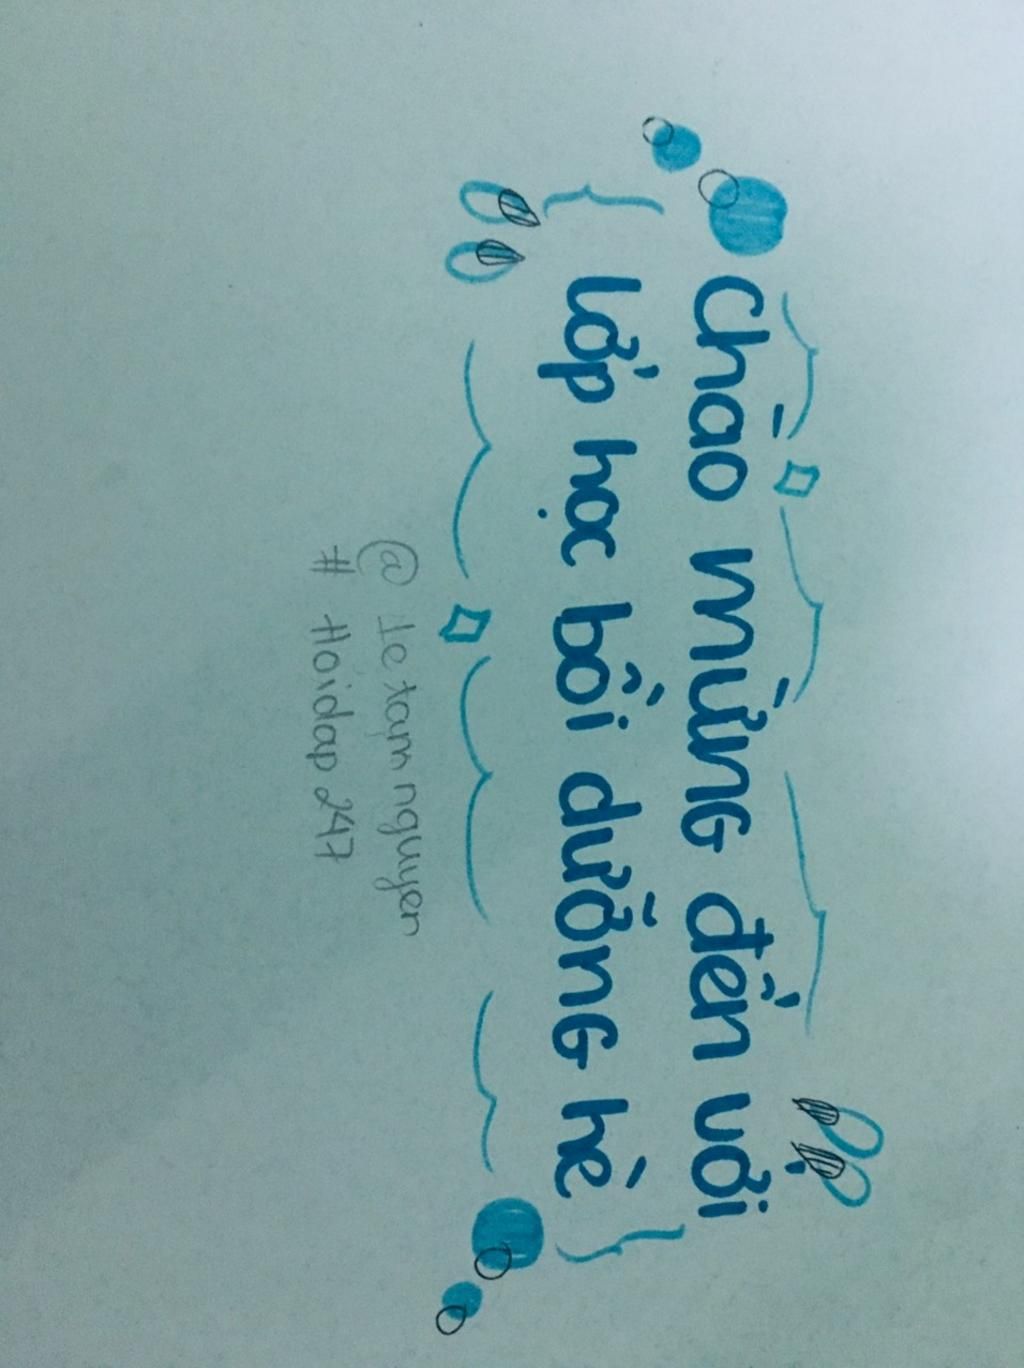 Chào mừng đến với
lớp học bồi dưỡng hè
@ letamnguyen
# Hoidap247